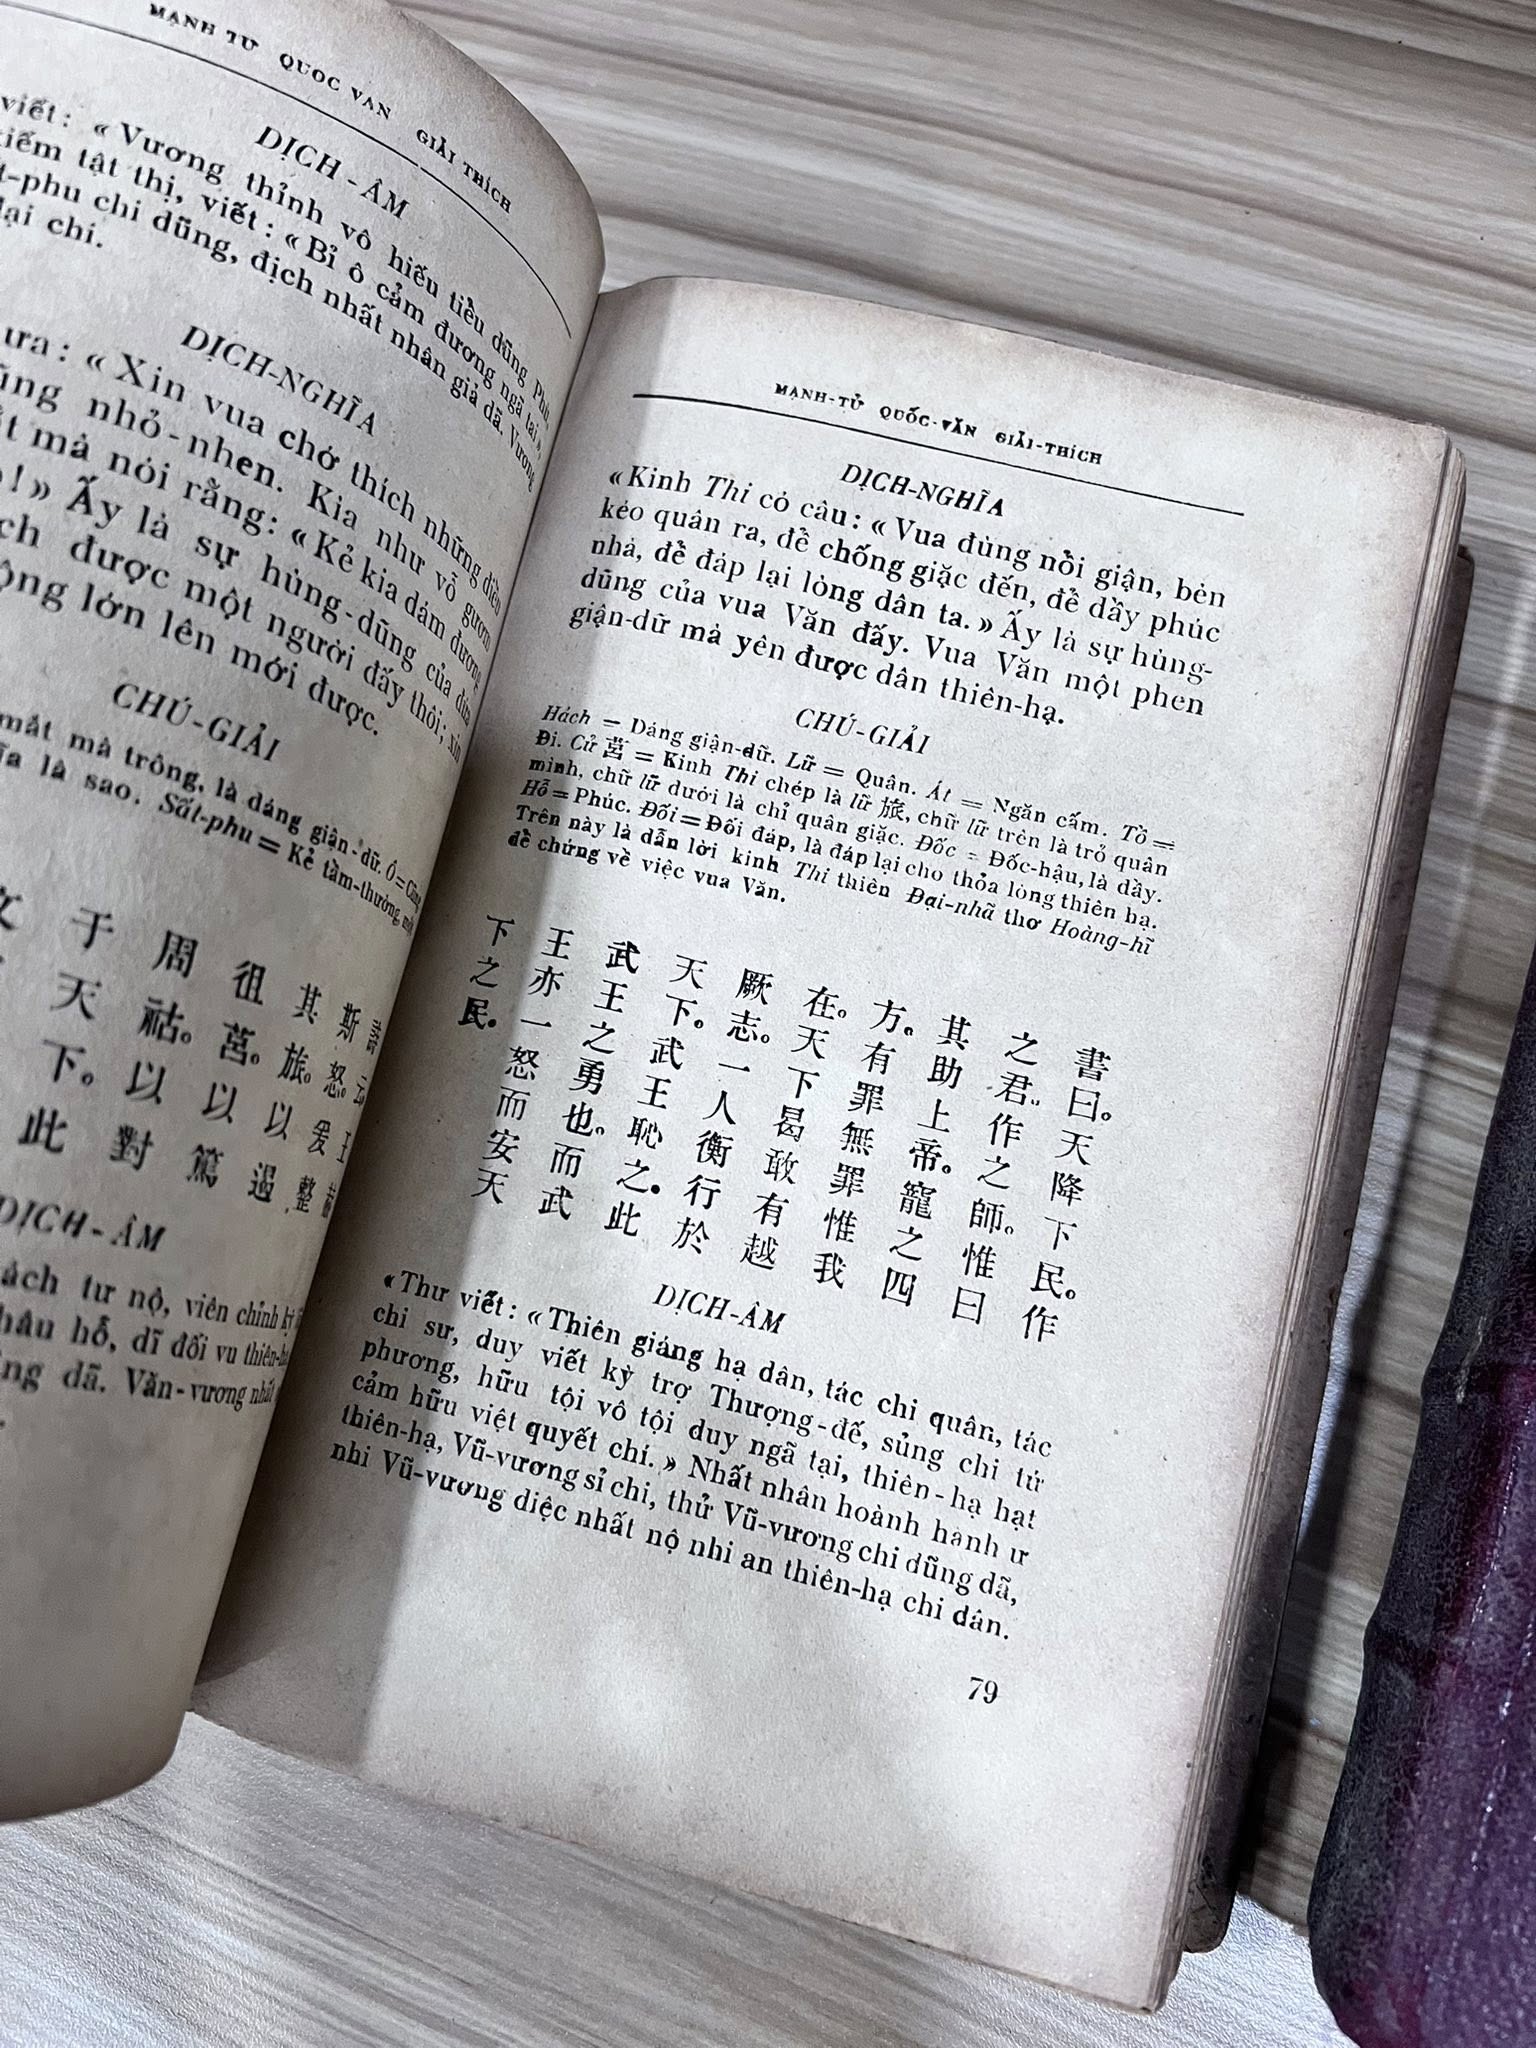 MẠNH TỬ QUỐC VĂN GIẢI THÍCH
DỊCH-ÂM
viết: « Vương thỉnh vô hiếu tiểu dũng Phù,
kiếm tật thị, viết: « Bỉ ô cảm đương ngã tai »,
t-phu chi dũng, địch nhất nhân giả dã. Vương
đại chi.
DỊCH-NGHĨA
ưa: « Xin vua chớ thích những điều
ũng nhỏ-nhen. Kia như vỗ gươm
ắt mà nói rằng: « Kẻ kia dám đương
! » Ấy là sự hùng-dũng của đứa
ch được một người đấy thôi; xin
ộng lớn lên mới được.
CHÚ-GIẢI
mắt mà trông, là dáng giận-dữ. Ô = Cũng
ĩa là sao. Sất-phu = Kẻ tầm-thường,
詩云王赫
斯怒。爰整
其旅。以遏
徂莒。以篤
周祜。以對
于天下。此
文
DỊCH-ÂM
ách tư nộ, viên chỉnh kỳ
hâu hỗ, dĩ đối vu thiên-hạ
ng dã. Văn-vương nhất
MẠNH-TỬ QUỐC-VĂN GIẢI-THÍCH
DỊCH-NGHĨA
« Kinh Thi có câu: « Vua đùng nồi giận, bèn
kéo quân ra, để chống giặc đến, để dầy phúc
nhà, để đáp lại lòng dân ta. » Ấy là sự hùng-
dũng của vua Văn đấy. Vua Văn một phen
giận-dữ mà yên được dân thiên-hạ.
CHÚ-GIẢI
Hách = Dáng giận-dữ. Lữ = Quân. Át = Ngăn cấm. Tồ =
Đi. Cử 莒 = Kinh Thi chép là lữ 旅, chữ lữ trên là trỏ quân
mình, chữ lữ dưới là chỉ quân giặc. Đốc = Đốc-hậu, là dầy.
Hỗ = Phúc. Đối = Đối đáp, là đáp lại cho thỏa lòng thiên hạ.
Trên này là dẫn lời kinh Thi thiên Đại-nhã thơ Hoàng-hĩ
để chứng về việc vua Văn.
書曰。天降下民。作
之君。作之師。惟曰
其助上帝。寵之四
方。有罪無罪惟我
在。天下曷敢有越
厥志。一人衡行於
天下。武王恥之。此
武王之勇也。而武
王亦一怒而安天
下之民。
DỊCH-ÂM
« Thư viết: « Thiên giáng hạ dân, tác chi quân, tác
chi sư, duy viết kỳ trợ Thượng-đế, sủng chi tứ
phương, hữu tội vô tội duy ngã tại, thiên-hạ hạt
cảm hữu việt quyết chí. » Nhất nhân hoành hành ư
thiên-hạ, Vũ-vương sỉ chi, thử Vũ-vương chi dũng dã,
nhi Vũ-vương diệc nhất nộ nhi an thiên-hạ chi dân.
79